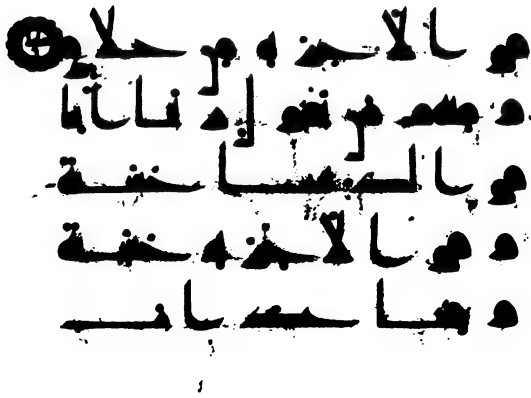 في الاخرة من خلاق
و منهم من يقول ربنا اتنا
في الدنيا حسنة
و في الاخرة حسنة
و قنا عذاب